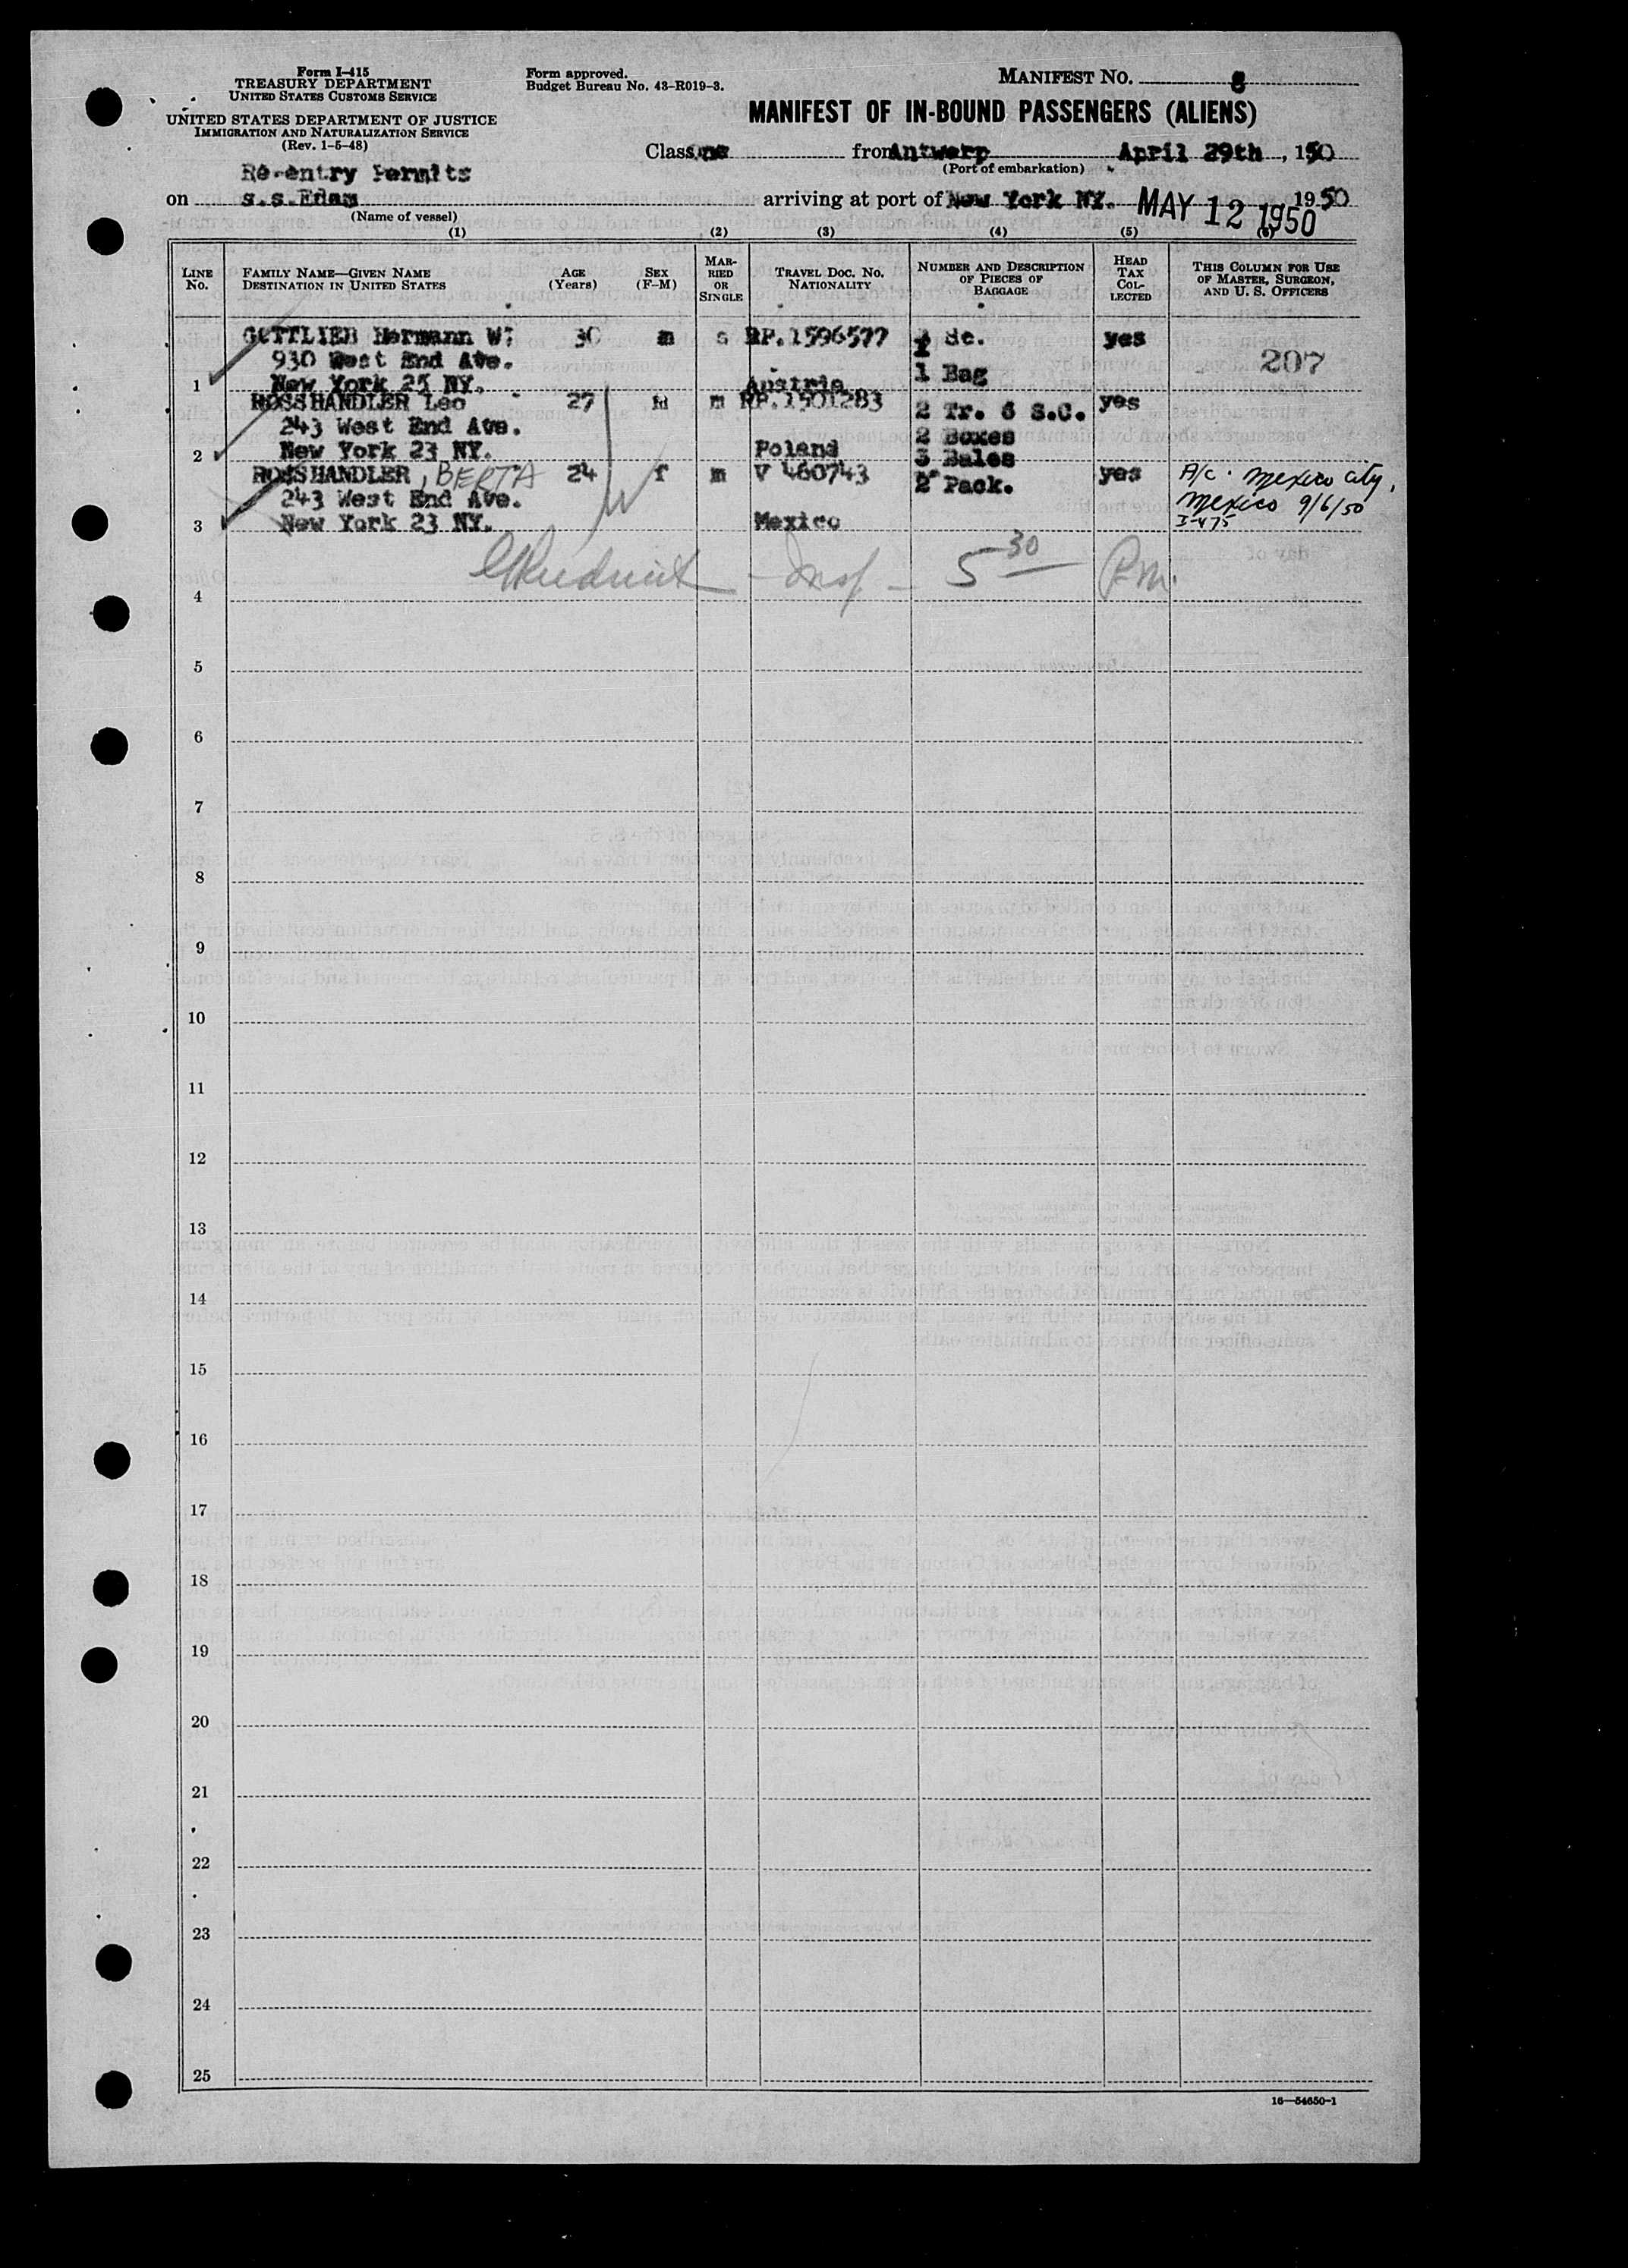 Form I-415
TREASURY DEPARTMENT
UNITED STATES CUSTOMS SERVICE
UNITED STATES DEPARTMENT OF JUSTICE
IMMIGRATION AND NATURALIZATION SERVICE
(Rev. 1-5-48)
Form approved.
Budget Bureau No. 43-R019-3.
MANIFEST NO. 8
MANIFEST OF IN-BOUND PASSENGERS (ALIENS)
Class one from Antwerp April 29th, 1950
(Port of embarkation)
Re-entry Permits
on s.s. Edam arriving at port of New York NY. MAY 12 1950 1950
(Name of vessel)
(1) (2) (3) (4) (5) (6)
LINE No. FAMILY NAME—GIVEN NAME DESTINATION IN UNITED STATES AGE (Years) SEX (F-M) MARRIED OR SINGLE TRAVEL DOC. NO. NATIONALITY NUMBER AND DESCRIPTION OF PIECES OF BAGGAGE HEAD TAX COLLECTED THIS COLUMN FOR USE OF MASTER, SURGEON, AND U. S. OFFICERS
GOTTLIEB Hermann W: 30 m s RP.1596577 Sc. yes
930 West End Ave. 1 Bag 207
1 New York 25 NY. Austria
ROSSHANDLER Leo 27 M m RP.1501283 2 Tr. 6 S.C. yes
243 West End Ave. 2 Boxes
2 New York 23 NY. Poland 3 Bales
ROSSHANDLER, BERTA 24 f m V 460743 2 Pack. yes A/c. Mexico City,
243 West End Ave. Mexico 9/6/50
3 New York 23 NY. Mexico I-475
Insp - 5 30 P.m.
4
5
6
7
8
9
10
11
12
13
14
15
16
17
18
19
20
21
22
23
24
25
16—54650-1